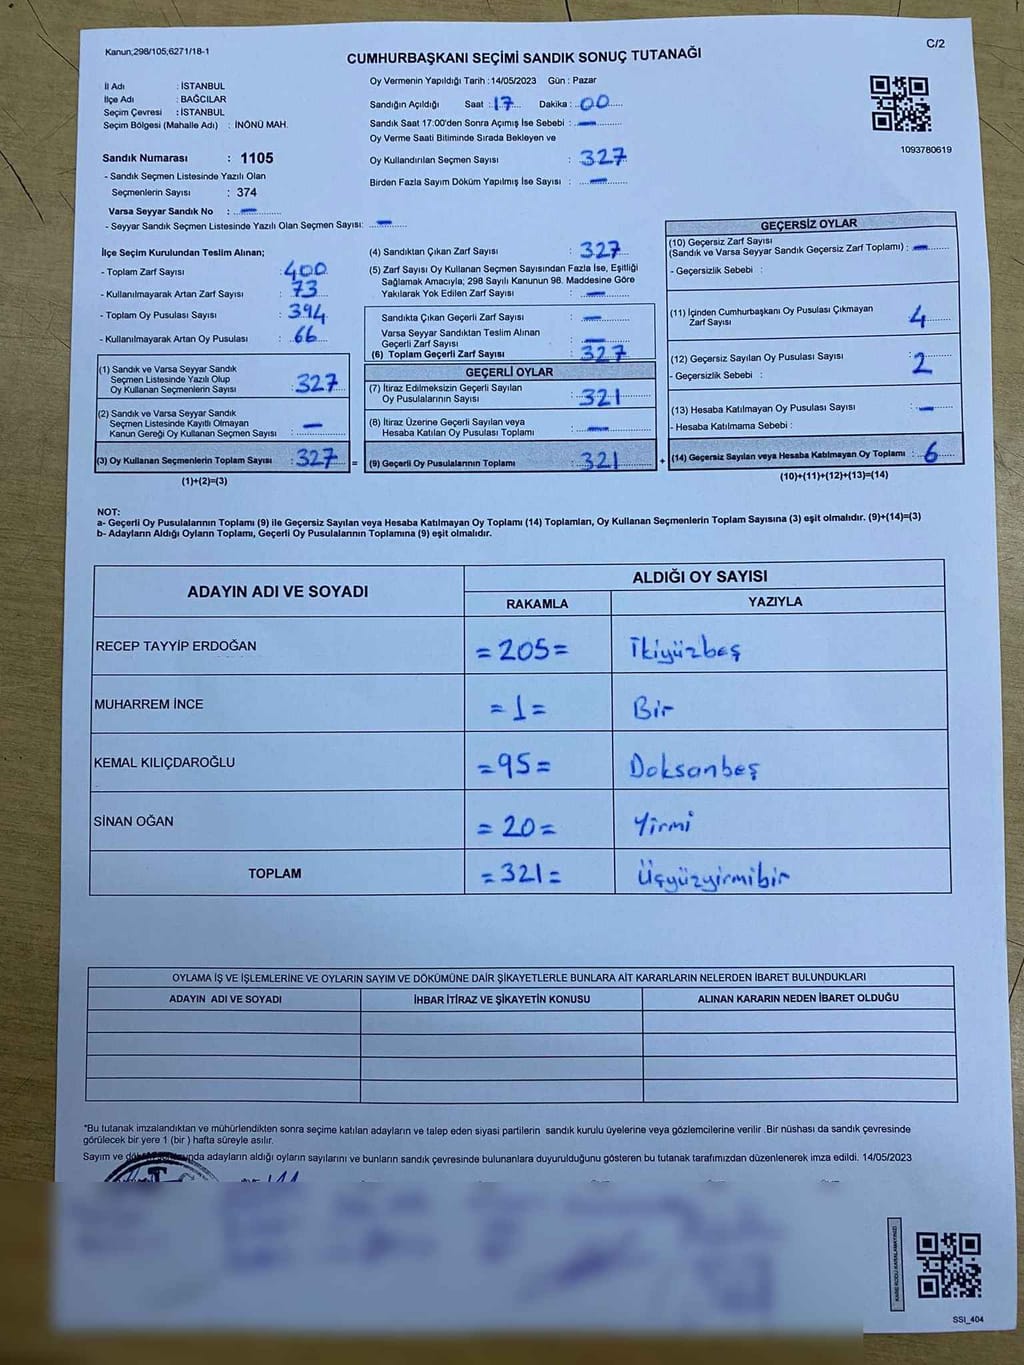 Kanun;298/105,6271/18-1
C/2
CUMHURBAŞKANI SEÇİMİ SANDIK SONUÇ TUTANAĞI
İl Adı : İSTANBUL
İlçe Adı : BAĞCILAR
Seçim Çevresi : İSTANBUL
Seçim Bölgesi (Mahalle Adı) : İNÖNÜ MAH.
Sandık Numarası : 1105
- Sandık Seçmen Listesinde Yazılı Olan
Seçmenlerin Sayısı : 374
Varsa Seyyar Sandık No : —
- Seyyar Sandık Seçmen Listesinde Yazılı Olan Seçmen Sayısı: —
Oy Vermenin Yapıldığı Tarih :14/05/2023 Gün : Pazar
Sandığın Açıldığı Saat : 17 Dakika : 00
Sandık Saat 17:00'den Sonra Açımış İse Sebebi : —
Oy Verme Saati Bitiminde Sırada Bekleyen ve
Oy Kullandırılan Seçmen Sayısı : 327
Birden Fazla Sayım Döküm Yapılmış İse Sayısı : —
1093780619
İlçe Seçim Kurulundan Teslim Alınan;
- Toplam Zarf Sayısı : 400
- Kullanılmayarak Artan Zarf Sayısı : 73
- Toplam Oy Pusulası Sayısı : 394
- Kullanılmayarak Artan Oy Pusulası : 66
(1) Sandık ve Varsa Seyyar Sandık
Seçmen Listesinde Yazılı Olup
Oy Kullanan Seçmenlerin Sayısı : 327
(2) Sandık ve Varsa Seyyar Sandık
Seçmen Listesinde Kayıtlı Olmayan
Kanun Gereği Oy Kullanan Seçmen Sayısı : —
(3) Oy Kullanan Seçmenlerin Toplam Sayısı : 327
(1)+(2)=(3)
=
(4) Sandıktan Çıkan Zarf Sayısı : 327
(5) Zarf Sayısı Oy Kullanan Seçmen Sayısından Fazla İse, Eşitliği
Sağlamak Amacıyla; 298 Sayılı Kanunun 98. Maddesine Göre
Yakılarak Yok Edilen Zarf Sayısı : —
Sandıkta Çıkan Geçerli Zarf Sayısı : —
Varsa Seyyar Sandıktan Teslim Alınan
Geçerli Zarf Sayısı : —
(6) Toplam Geçerli Zarf Sayısı : 327
GEÇERLİ OYLAR
(7) İtiraz Edilmeksizin Geçerli Sayılan
Oy Pusulalarının Sayısı : 321
(8) İtiraz Üzerine Geçerli Sayılan veya
Hesaba Katılan Oy Pusulası Toplamı : —
(9) Geçerli Oy Pusulalarının Toplamı : 321
+
GEÇERSİZ OYLAR
(10) Geçersiz Zarf Sayısı
(Sandık ve Varsa Seyyar Sandık Geçersiz Zarf Toplamı) : —
- Geçersizlik Sebebi :
(11) İçinden Cumhurbaşkanı Oy Pusulası Çıkmayan
Zarf Sayısı : 4
(12) Geçersiz Sayılan Oy Pusulası Sayısı : 2
- Geçersizlik Sebebi :
(13) Hesaba Katılmayan Oy Pusulası Sayısı : —
- Hesaba Katılmama Sebebi :
(14) Geçersiz Sayılan veya Hesaba Katılmayan Oy Toplamı : 6
(10)+(11)+(12)+(13)=(14)
NOT:
a- Geçerli Oy Pusulalarının Toplamı (9) ile Geçersiz Sayılan veya Hesaba Katılmayan Oy Toplamı (14) Toplamları, Oy Kullanan Seçmenlerin Toplam Sayısına (3) eşit olmalıdır. (9)+(14)=(3)
b- Adayların Aldığı Oyların Toplamı, Geçerli Oy Pusulalarının Toplamına (9) eşit olmalıdır.
ADAYIN ADI VE SOYADI
ALDIĞI OY SAYISI
RAKAMLA YAZIYLA
RECEP TAYYİP ERDOĞAN =205= İkiyüzbeş
MUHARREM İNCE =1= Bir
KEMAL KILIÇDAROĞLU =95= Doksanbeş
SİNAN OĞAN =20= Yirmi
TOPLAM =321= Üçyüzyirmibir
OYLAMA İŞ VE İŞLEMLERİNE VE OYLARIN SAYIM VE DÖKÜMÜNE DAİR ŞİKAYETLERLE BUNLARA AİT KARARLARIN NELERDEN İBARET BULUNDUKLARI
ADAYIN ADI VE SOYADI İHBAR İTİRAZ VE ŞİKAYETİN KONUSU ALINAN KARARIN NEDEN İBARET OLDUĞU
*Bu tutanak imzalandıktan ve mühürlendikten sonra seçime katılan adayların ve talep eden siyasi partilerin sandık kurulu üyelerine veya gözlemcilerine verilir .Bir nüshası da sandık çevresinde
görülecek bir yere 1 (bir ) hafta süreyle asılır.
Sayım ve dökümü sonunda adayların aldığı oyların sayılarını ve bunların sandık çevresinde bulunanlara duyurulduğunu gösteren bu tutanak tarafımızdan düzenlenerek imza edildi. 14/05/2023
SSI_404